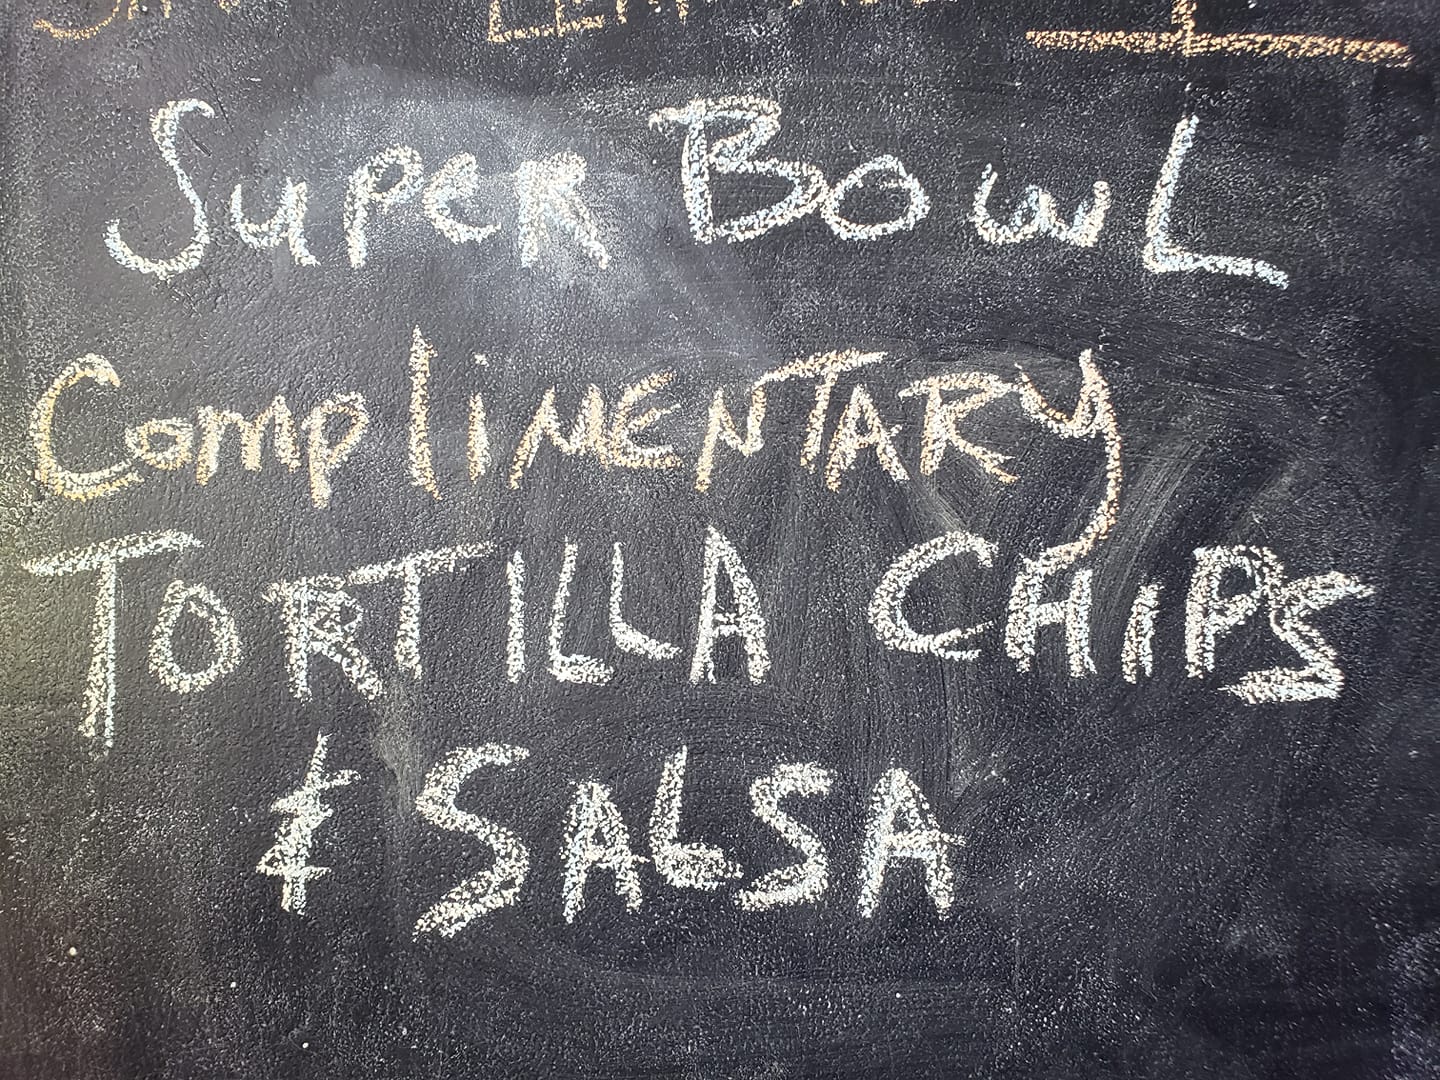 Super Bowl
Complimentary
Tortilla Chips
& Salsa